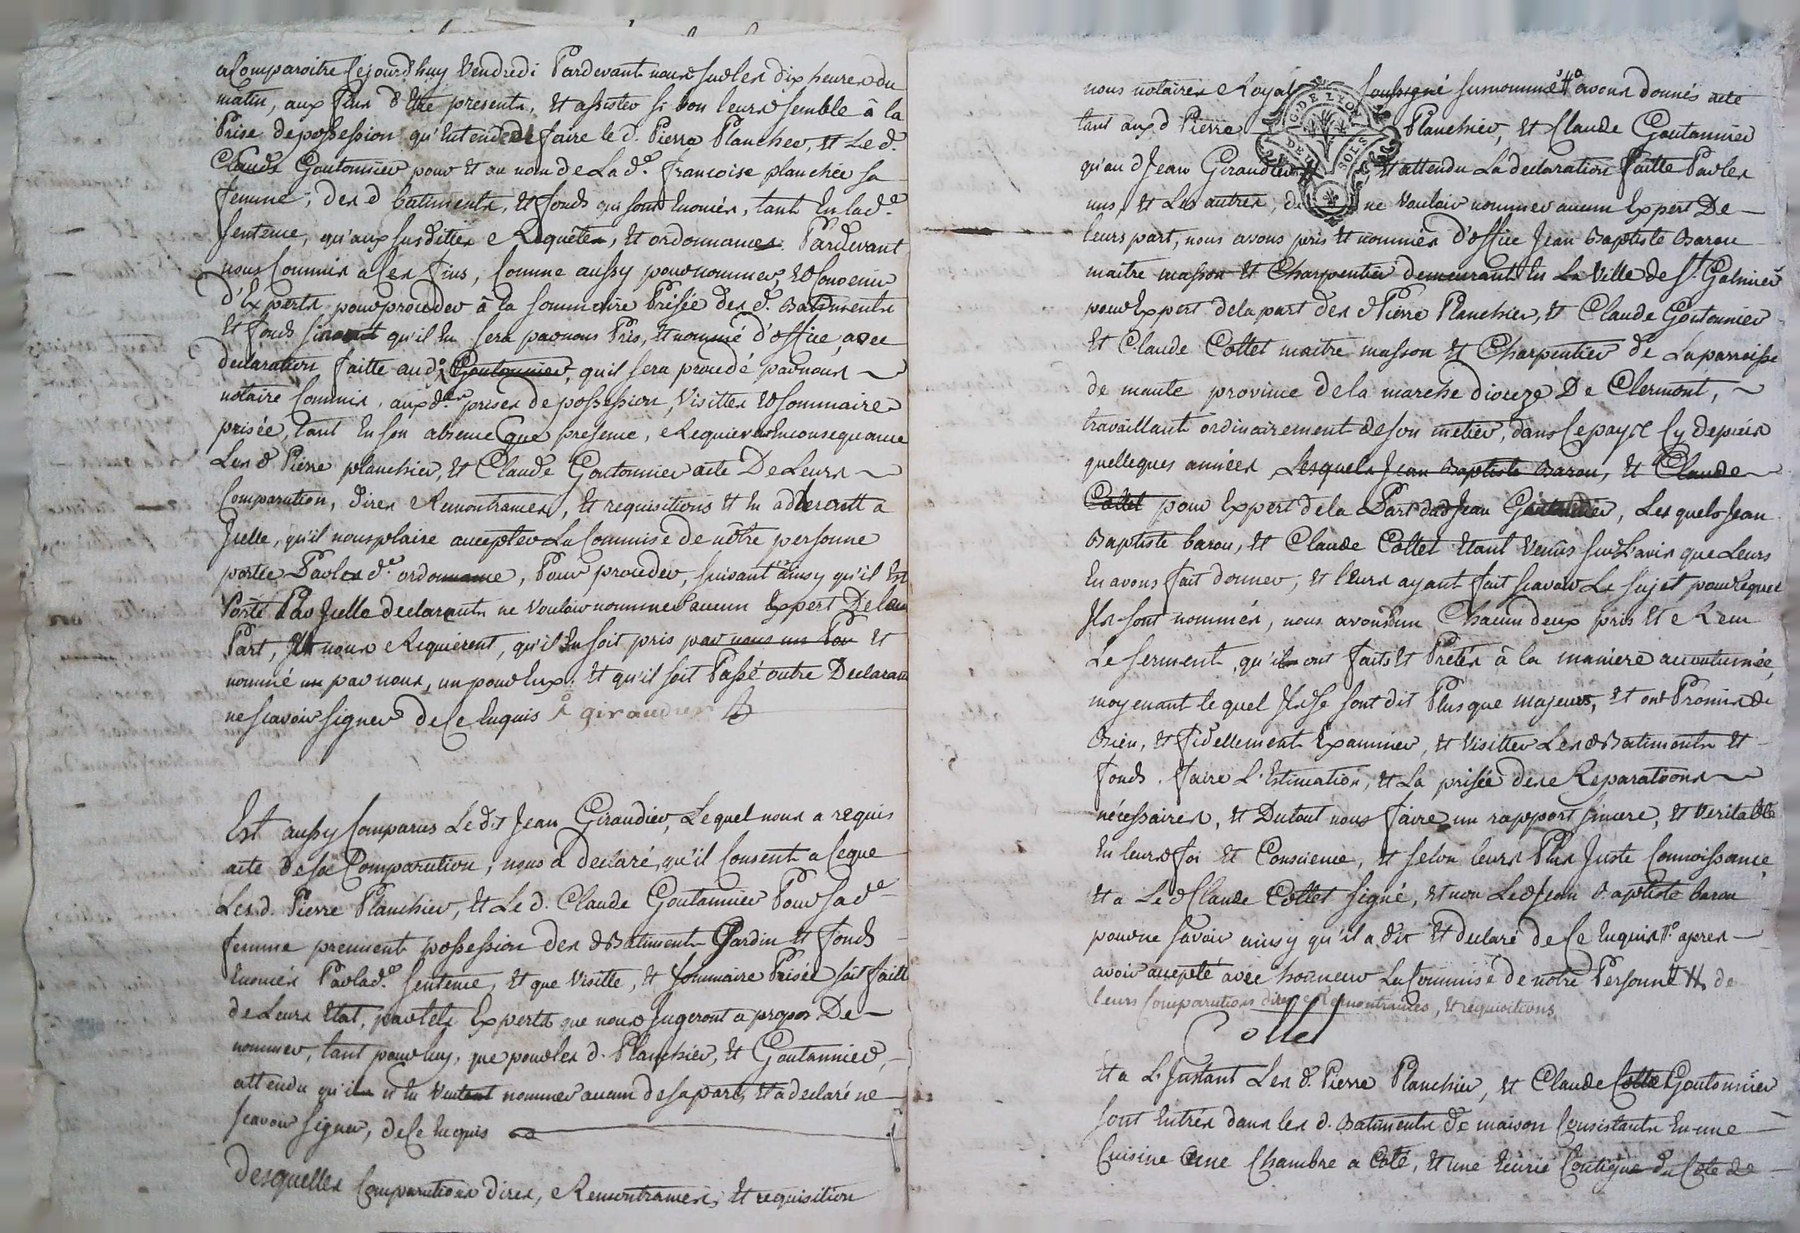 a Comparoitre Cejourd'huy Vendredi Pardevant nous sur les dix heures du
matin, aux fins d'Etre presents, Et assister si bon leurs semble à la
Prise de possession qu'Entendent faire le d. Pierre Planchier, Et Le d.
Claude Goutonnier pour Et au nom de La de. francoise planchier sa
femme, des d batiments, Et fonds qui sont Enoncés, tant En lad.e
sentence, qu'aux susdittes Requêtes, Et ordonnances Pardevant
nous Commis a Ces fins, Comme aussy pour nommer, Et Convenir
d'Experts pour proceder à la sommaire Prisée des d. Batiments
Et fonds sinont qu'il En sera par nous Pris, Et nommé d'office, avec
declaration faitte aud. Goutonnier, qu'il sera procedé par nous
notaire Commis, aux d. prises de possession, Visittes Et Sommaire
prisée, tant En son absence que presence, Requierants En consequance
Les d Pierre planchier, Et Claude Goutonnier acte De Leurs
Comparution, dires Remontrances, Et requisitions Et En adherant a
Jcelle, qu'il nous plaise accepter La Commise de nôtre personne
portée Par les d. ordonnance, Pour proceder, suivant ainsy qu'il Est
Porté Par Jcelle declarants ne Vouloir nommer aucun Expert De leur
Part, Et nous Requierent, qu'il En soit pris par nous un Pou Et
nommé un par nous, un pour Eux, Et qu'il soit Passé outre Declarant
ne scavoir signer de Ce Enquis J giraudier
Est aussy Comparus Le dit Jean Giraudier, Lequel nous a requis
acte de sa Comparution, nous a declaré, qu'il Consent a Ceque
Les d. Pierre Planchier, Et Le d. Claude Goutonnier Pour sa de
femme prennent possession des d Batiments Jardin Et fonds
Enoncés Par lad.e sentence, Et que Visitte, Et sommaire Prisée soit faitte
de Leurs Etat, par tels Experts que nous Jugeront a propos De
nommer, tant pour luy, que pour les d. Planchier, Et Goutonnier,
attendu qu'il n'En Veulent nommer aucun de sa part, Et a declaré ne
scavoir signer, de Ce Enquis
Desquelles Comparutions dires, Remontrances, Et requisition
nous notaires Royal soussigné susnommé avons donnés acte
tant aux d Pierre Planchier, Et Claude Goutonnier
qu'au d Jean Giraudier Et attendu La declaration faitte Par les
uns, Et Les autres, de ne Vouloir nommer aucun Expert De
leurs part, nous avons pris Et nommés d'office Jean Baptiste Barou
maitre masson Et Charpentier demeurant En La Ville de St. Galmier
pour Expert de la part des d Pierre Planchier, Et Claude Goutonnier
Et Claude Collet maitre masson Et Charpentier de La parroisse
de mante province de la marche diocéze De Clermont,
travaillant ordinairement de son metier, dans Ce pays Cy depuis
quellegues années Lesquels Jean Baptiste Barou, Et Claude
Collet pour Expert de la Part dud Jean Giraudier, Lesquels Jean
Baptiste barou, Et Claude Collet Etant Venus sur L'avis que Leurs
En avons fait donner, Et leurs ayant fait scavoir Le sujet pour lequel
Jls sont nommés, nous avons d'un Chacun deux pris Et Recu
Le serment, qu'ils ont faits Et Pretés à la maniere accoutumée,
moyenant le quel Jls se sont dit Plus que majeurs, Et ont Promis de
Bien, Et fidellement Examiner, Et Visitter Les d Batiments Et
fonds, faire L'Estimation, Et La prisée des Reparations
nécessaires, Et Du tout nous faire un rapport sincere, Et Veritable
En leurs foi Et Conscience, Et selon leurs Plus Juste Connoissance,
Et a Led Claude Collet signé, Et non Led Jean Baptiste barou
pour ne savoir ainsy qu'il a dit Et declaré de Ce Enquis apres
avoir accepté avec honneur La Commise de notre Personne de
leurs Comparutions dires Remontrances, Et requisitions
Collet
Et a L'Jnstant Les d. Pierre Planchier, Et Claude Collet Goutonnier
sont Entrés dans les d. Batiments de maison Consistants En une
Cuisine une Chambre a Coté, Et une Ecurie Contigue du Coté de
G. DE LYON
DEUX SOLS